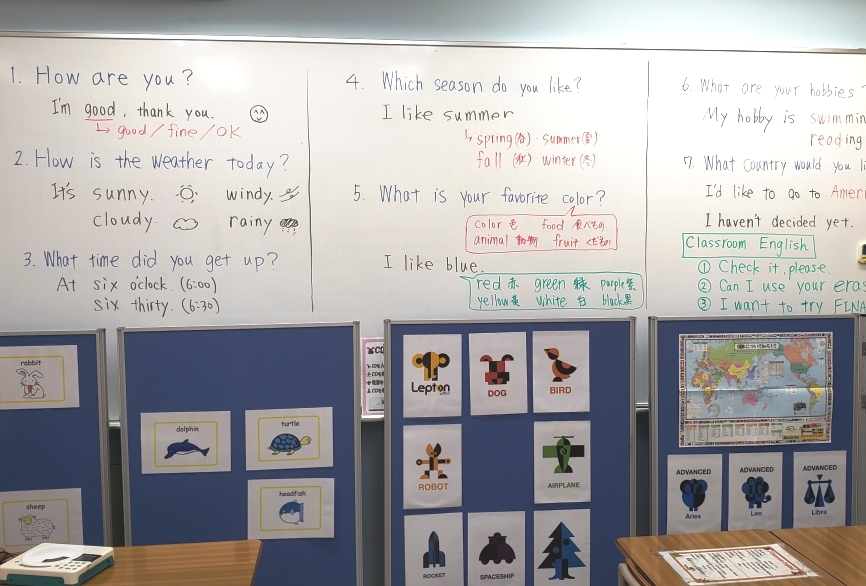 1. How are you?
I'm good, thank you.
↳ good / fine / OK
2. How is the weather today?
It's sunny. windy.
cloudy. rainy
3. What time did you get up?
At six o'clock. (6:00)
six thirty. (6:30)
4. Which season do you like?
I like summer
↳ spring (春) · summer (夏)
fall (秋) winter (冬)
5. What is your favorite color?
color 色 food 食べもの
animal 動物 fruit くだもの
I like blue.
red 赤 green 緑 purple 紫
yellow 黄 white 白 black 黒
6. What are your hobbies?
My hobby is swimmin
reading
7. What country would you li
I'd like to go to Amer
I haven't decided yet.
Classroom English
① Check it, please.
② Can I use your eras
③ I want to try FINA
rabbit
sheep
dolphin
turtle
headfish
Lepton
DOG
BIRD
ROBOT
AIRPLANE
ROCKET
SPACESHIP
ADVANCED
Aries
ADVANCED
Leo
ADVANCED
Libra